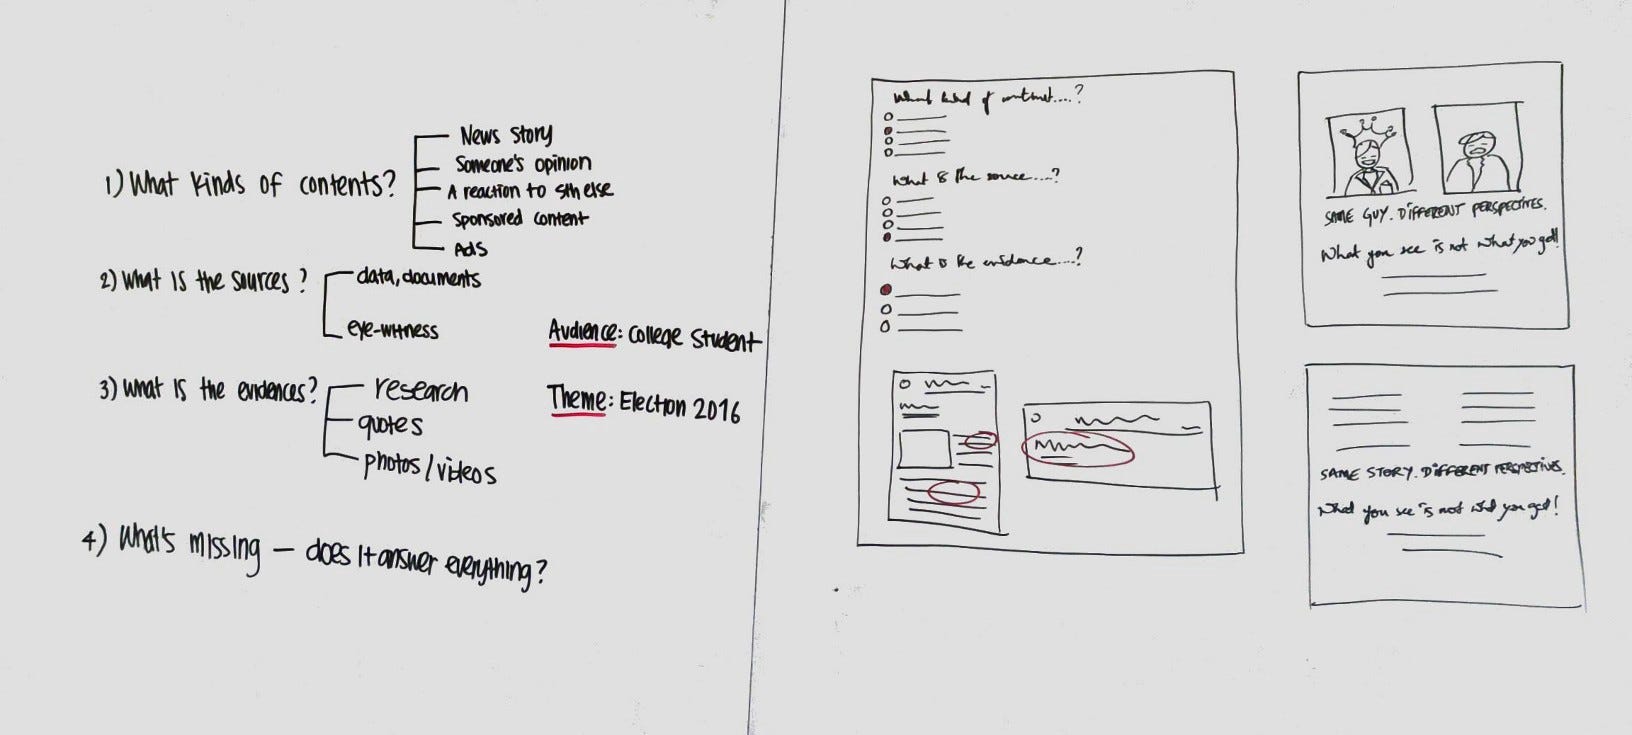 1) What kinds of contents?
News Story
Someone's opinion
A reaction to sth else
Sponsored content
Ads
2) What is the sources?
data, documents
eye-witness
3) What is the evidences?
research
quotes
photos/videos
4) What's missing – does it answer everything?
Audience: College Student
Theme: Election 2016
What kind of content....?
What is the source....?
What is the evidence....?
SAME GUY. DIFFERENT PERSPECTIVES.
What you see is not what you get!
SAME STORY. DIFFERENT PERSPECTIVES.
What you see is not what you get!